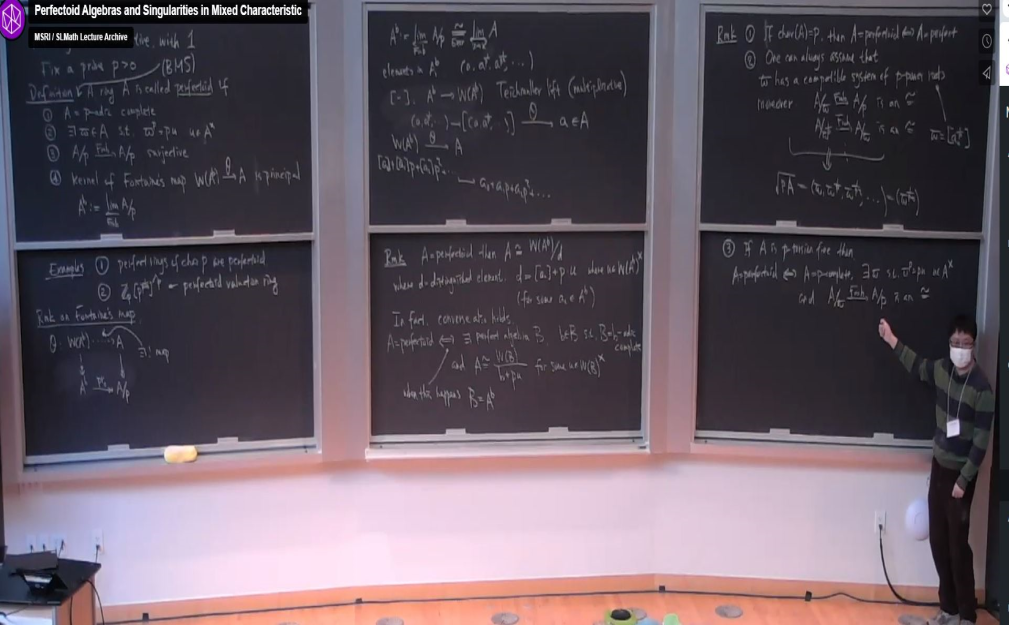 Perfectoid Algebras and Singularities in Mixed Characteristic
MSRI / SLMath Lecture Archive
with 1
Fix a prime p>0 (BMS)
Definition A ring A is called perfectoid if
① A = p-adic complete
② ∃ϖ∈A s.t. ϖᵖ=pu u∈Aˣ
③ A/p Frob→ A/p surjective
④ kernel of Fontaine's map W(A♭) θ→ A is principal
A♭ := lim Frob A/p
Examples ① perfect rings of char p are perfectoid
② perfectoid valuation ring
Rmk on Fontaine's map
θ: W(A♭) → A
∃! map
A♭ → A/p
A♭ = lim A/p ≅ lim A
elements in A♭
[-]: A♭ → W(A♭) Teichmuller lift (multiplicative)
θ→ a∈A
W(A♭) θ→ A
[a₀]+[a₁]p+[a₂]p²...
→ a₀+a₁p+a₂p²+...
Rmk A=perfectoid then A≅ W(A♭)/d
where d=distinguished element. d=[a₀]+pu where u∈W(A♭)ˣ
(for some a₀∈A♭)
In fact, converse also holds.
A=perfectoid ⟺ ∃ perfect algebra B, b∈B s.t. B=b-adic complete
and A≅ W(B)/b+pu for some u∈W(B)ˣ
when this happens B=A♭
Rmk ① If char(A)=p, then A=perfectoid ⟺ A=perfect
② One can always assume that
ϖ has a compatible system of p-power roots
moreover A/ϖ Frob→ A/p is an ≅
③ If A is p-torsion free then
A=perfectoid ⟺ A=p-complete, ∃ϖ s.t. ϖᵖ=pu u∈Aˣ
and A/ϖ Frob→ A/p is an ≅